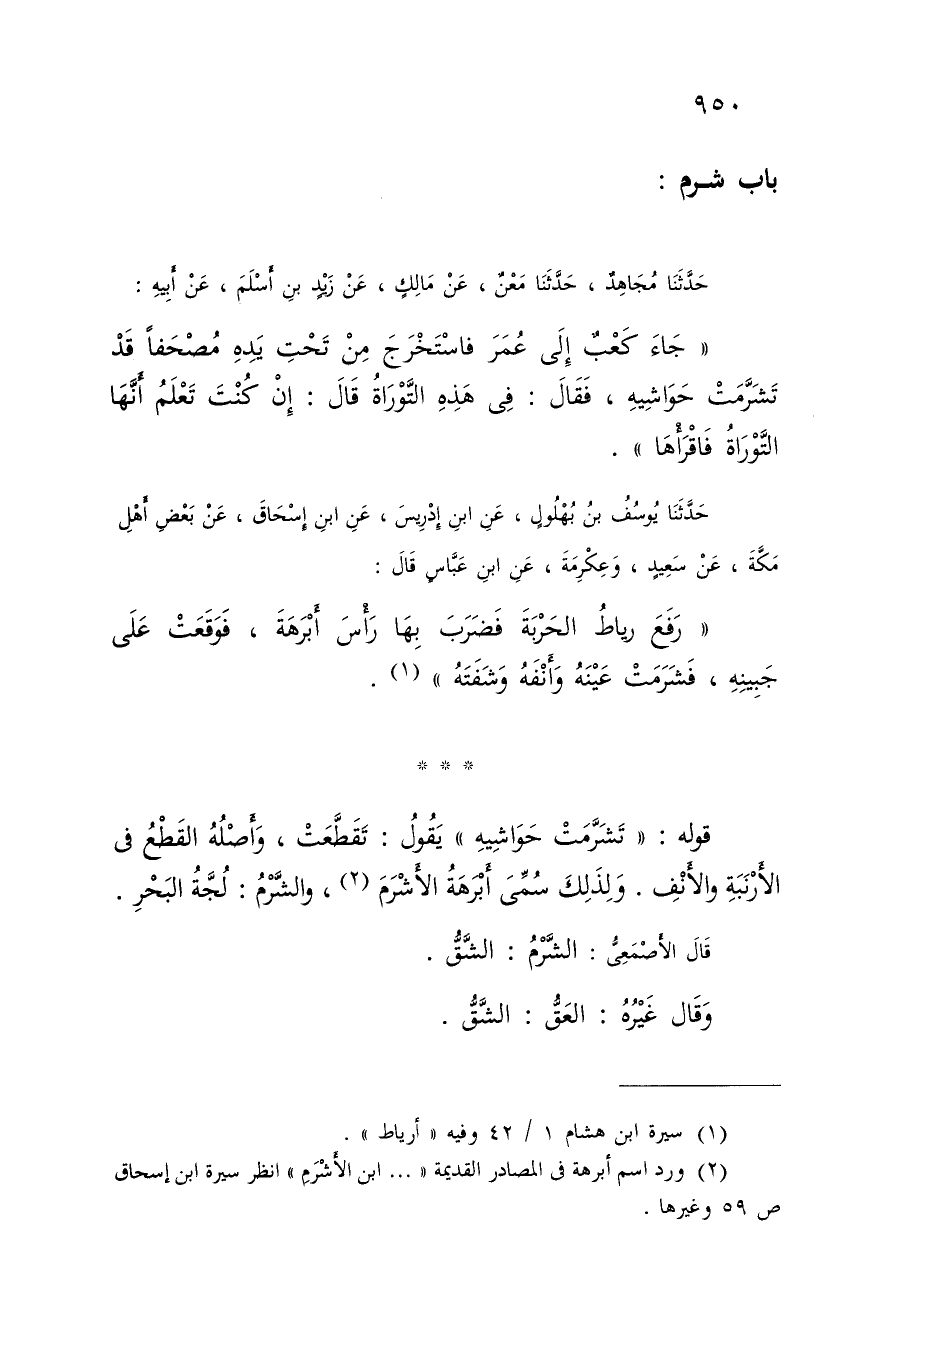 ٩٥٠
باب شـرم :
حَدَّثَنَا مُجَاهِدٌ ، حَدَّثَنَا مَعْنٌ ، عَنْ مَالِكٍ ، عَنْ زَيْدٍ بنِ أَسْلَمَ ، عَنْ أَبِيهِ :
« جَاءَ كَعْبٌ إِلَى عُمَرَ فاسْتَخْرَجَ مِنْ تَحْتِ يَدِهِ مُصْحَفاً قَدْ
تَشَرَّمَتْ حَوَاشِيهِ ، فَقَالَ : فِى هَذِهِ التَّوْرَاةُ قَالَ : إِنْ كُنْتَ تَعْلَمُ أَنَّهَا
التَّوْرَاةُ فَاقْرَأْهَا » .
حَدَّثَنَا يُوسُفُ بنُ بُهْلُولٍ ، عَنِ ابنِ إِدْرِيسَ ، عَنِ ابنِ إِسْحَاقَ ، عَنْ بَعْضِ أَهْلِ
مَكَّةَ ، عَنْ سَعِيدٍ ، وَعِكْرِمَةَ ، عَنِ ابنِ عَبَّاسٍ قَالَ :
« رَفَعَ رياطُ الحَرْبَةَ فَضَرَبَ بِهَا رَأْسَ أَبْرَهَةَ ، فَوَقَعَتْ عَلَى
جَبِينِهِ ، فَشَرَمَتْ عَيْنَهُ وَأَنْفَهُ وَشَفَتَهُ » (١) .
* * *
قوله : « تَشَرَّمَتْ حَوَاشِيهِ » يَقُولُ : تَقَطَّعَتْ ، وَأَصْلُهُ القَطْعُ فى
الأَرْنَبَةِ والأَنْفِ . وَلِذَلِكَ سُمِّىَ أَبْرَهَةُ الأَشْرَمَ (٢) ، والشَّرْمُ : لُجَّةُ البَحْرِ .
قَالَ الأَصْمَعِىُّ : الشَّرْمُ : الشَّقُّ .
وَقَال غَيْرُهُ : العَقُّ : الشَّقُّ .
(١) سيرة ابن هشام ١ / ٤٢ وفيه « أرياط » .
(٢) ورد اسم أبرهة فى المصادر القديمة « ... ابن الأَشْرَمِ » انظر سيرة ابن إسحاق
ص ٥٩ وغيرها .